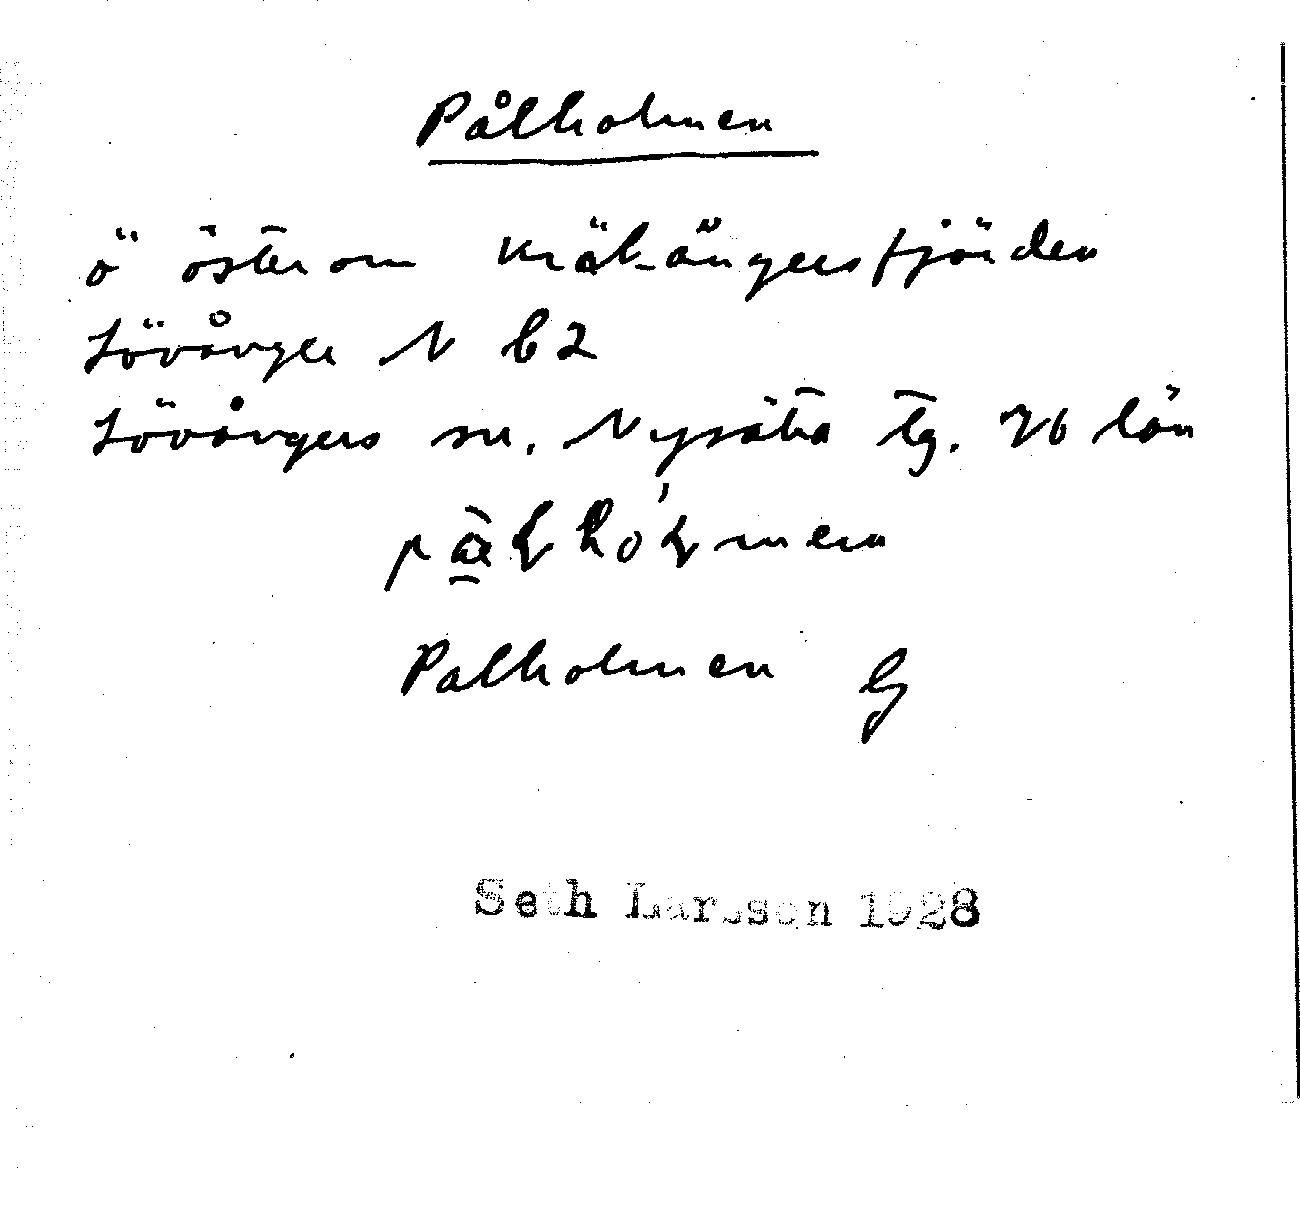 Pålholmen
ö öster om Kräk-ångersfjärden
Lövånger N b2
Lövångers sn. Nysätra tg. Vb län
Palholmen G
Seth Larsson 1928